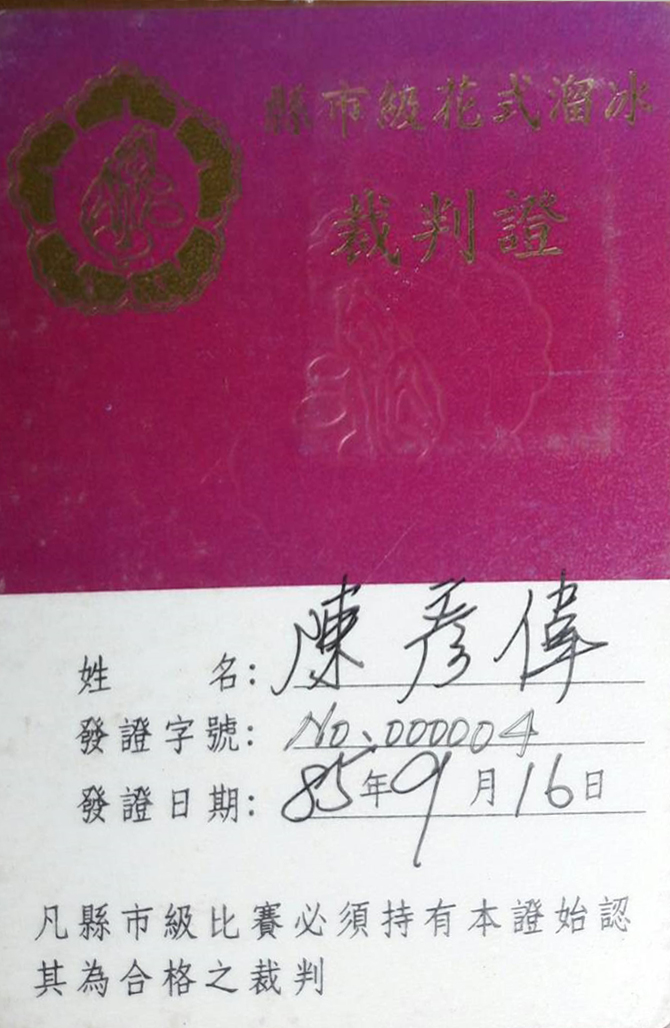 縣市級花式溜冰
裁判證
姓名:陳彥偉
發證字號:No、000004
發證日期:85年9月16日
凡縣市級比賽必須持有本證始認
其為合格之裁判